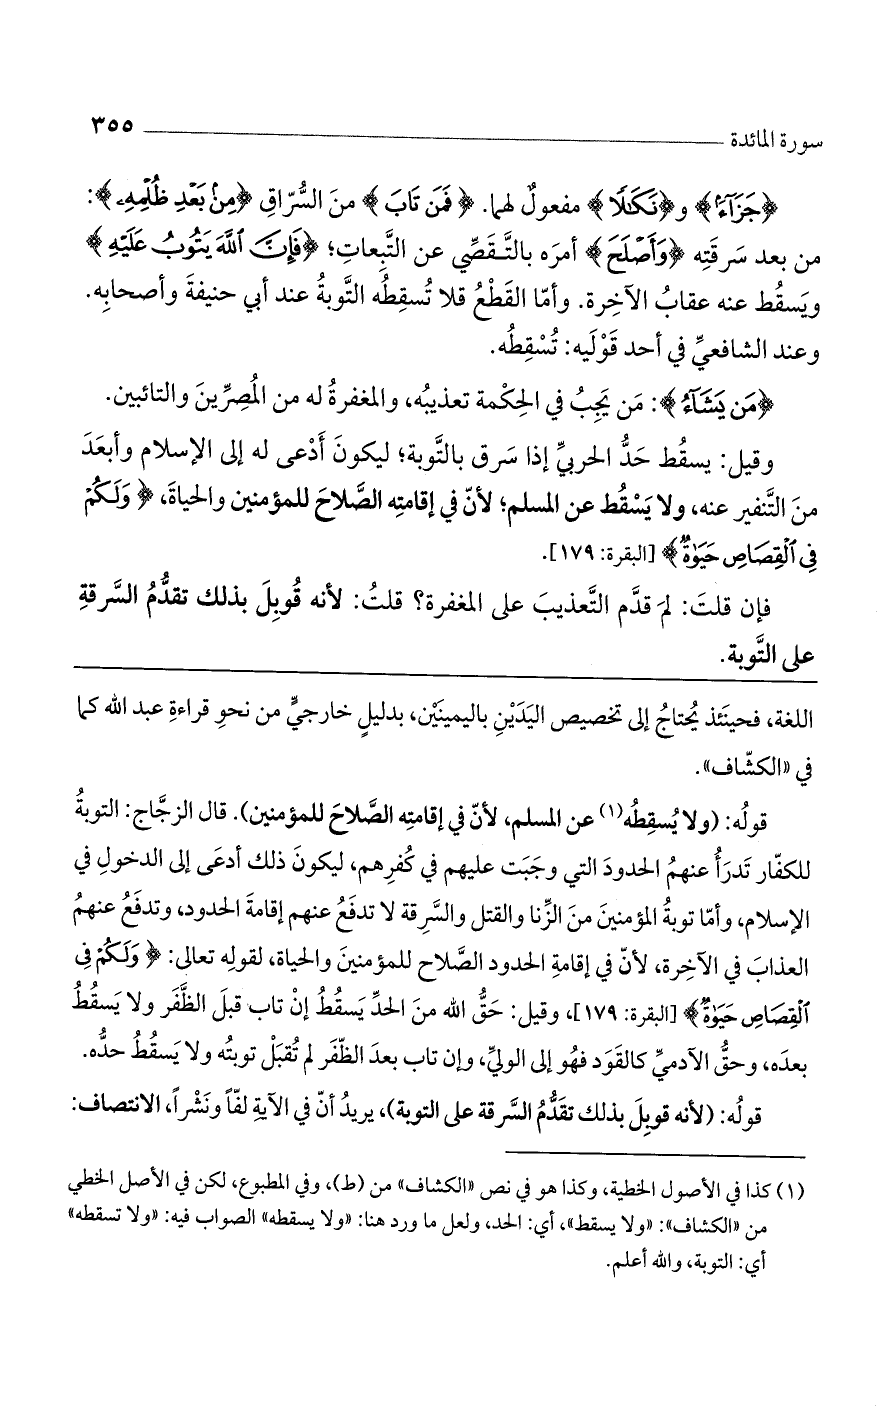 سورة المائدة ٣٥٥
﴿جَزَآءً﴾ و﴿نَكَلًا﴾ مفعولٌ لهما. ﴿فَمَن تَابَ﴾ منَ السُّرّاقِ ﴿مِنۢ بَعْدِ ظُلْمِهِۦ﴾:
من بعد سَرقَتِه ﴿وَأَصْلَحَ﴾ أمرَه بالتَّـفَصِّي عن التَّبِعاتِ؛ ﴿فَإِنَّ ٱللَّهَ يَتُوبُ عَلَيْهِ﴾
ويَسقُط عنه عقابُ الآخِرة. وأمّا القَطْعُ فلا تُسقِطُه التَّوبةُ عند أبي حنيفةَ وأصحابِه.
وعند الشافعيِّ في أحد قَوْلَيه: تُسْقِطُه.
﴿مَن يَشَآءُ﴾: مَن يَجِبُ في الحِكْمة تعذيبُه، والمغفرةُ له من المُصِرِّينَ والتائبين.
وقيل: يسقُط حَدُّ الحربيِّ إذا سَرق بالتَّوبة؛ ليكونَ أَدْعى له إلى الإسلام وأبعَدَ
منَ التَّنفير عنه، ولا يَسْقُط عن المسلم؛ لأنّ في إقامتِه الصَّلاحَ للمؤمنين والحياةَ، ﴿وَلَكُمْ
فِى ٱلْقِصَاصِ حَيَوٰةٌ﴾ [البقرة: ١٧٩].
فإن قلتَ: لمَ قدَّم التَّعذيبَ على المغفرة؟ قلتُ: لأنه قُوبِلَ بذلك تقدُّمُ السَّرقةِ
على التَّوبة.
اللغة، فحينَئذ يُحتاجُ إلى تخصيص اليَدَيْنِ باليمينَيْن، بدليلٍ خارجيٍّ من نحوِ قراءةِ عبد الله كما
في «الكشّاف».
قولُه: (ولا يُسقِطُه(١) عن المسلم، لأنّ في إقامتِه الصَّلاحَ للمؤمنين). قال الزجَّاج: التوبةُ
للكفّار تَدرَأُ عنهمُ الحدودَ التي وجَبَت عليهم في كُفرِهم، ليكونَ ذلك أدعَى إلى الدخولِ في
الإسلام، وأمّا توبةُ المؤمنينَ منَ الزِّنا والقتل والسَّرِقة لا تدفَعُ عنهم إقامةَ الحدود، وتدفَعُ عنهمُ
العذابَ في الآخِرة، لأنّ في إقامةِ الحدود الصَّلاح للمؤمنينَ والحياة، لقولِه تعالى: ﴿وَلَكُمْ فِى
ٱلْقِصَاصِ حَيَوٰةٌ﴾ [البقرة: ١٧٩]، وقيل: حَقُّ الله منَ الحدِّ يَسقُطُ إنْ تاب قبلَ الظَّفَر ولا يَسقُطُ
بعدَه، وحقُّ الآدميِّ كالقَوَد فهُو إلى الوليِّ، وإن تاب بعدَ الظَّفَر لم تُقبَلْ توبتُه ولا يَسقُطُ حدُّه.
قولُه: (لأنه قوبِلَ بذلك تقَدُّمُ السَّرقة على التوبة)، يريدُ أنّ في الآيةِ لفّاً ونَشْراً، الانتصاف:
(١) كذا في الأصول الخطية، وكذا هو في نص «الكشاف» من (ط)، وفي المطبوع، لكن في الأصل الخطي
من «الكشاف»: «ولا يسقط»، أي: الحد، ولعل ما ورد هنا: «ولا يسقطه» الصواب فيه: «ولا تسقطه»
أي: التوبة، والله أعلم.